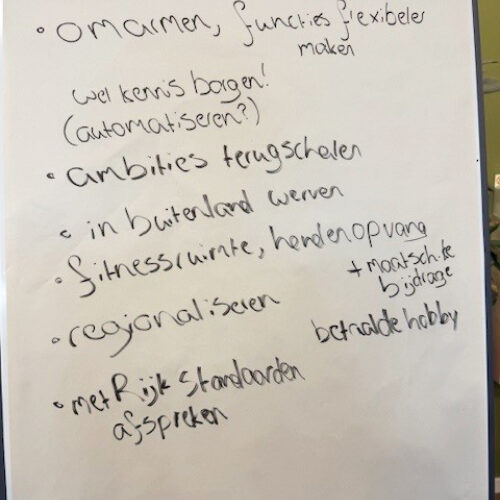 • omarmen, functies flexibeler
maken
wel kennis borgen!
(automatiseren?)
• ambities terugschalen
• in buitenland werven
• fitnessruimte, hondenopvang
+ maatsch.ke
bijdrage
• regionaliseren
betaalde hobby
• met Rijk standaarden
afspreken